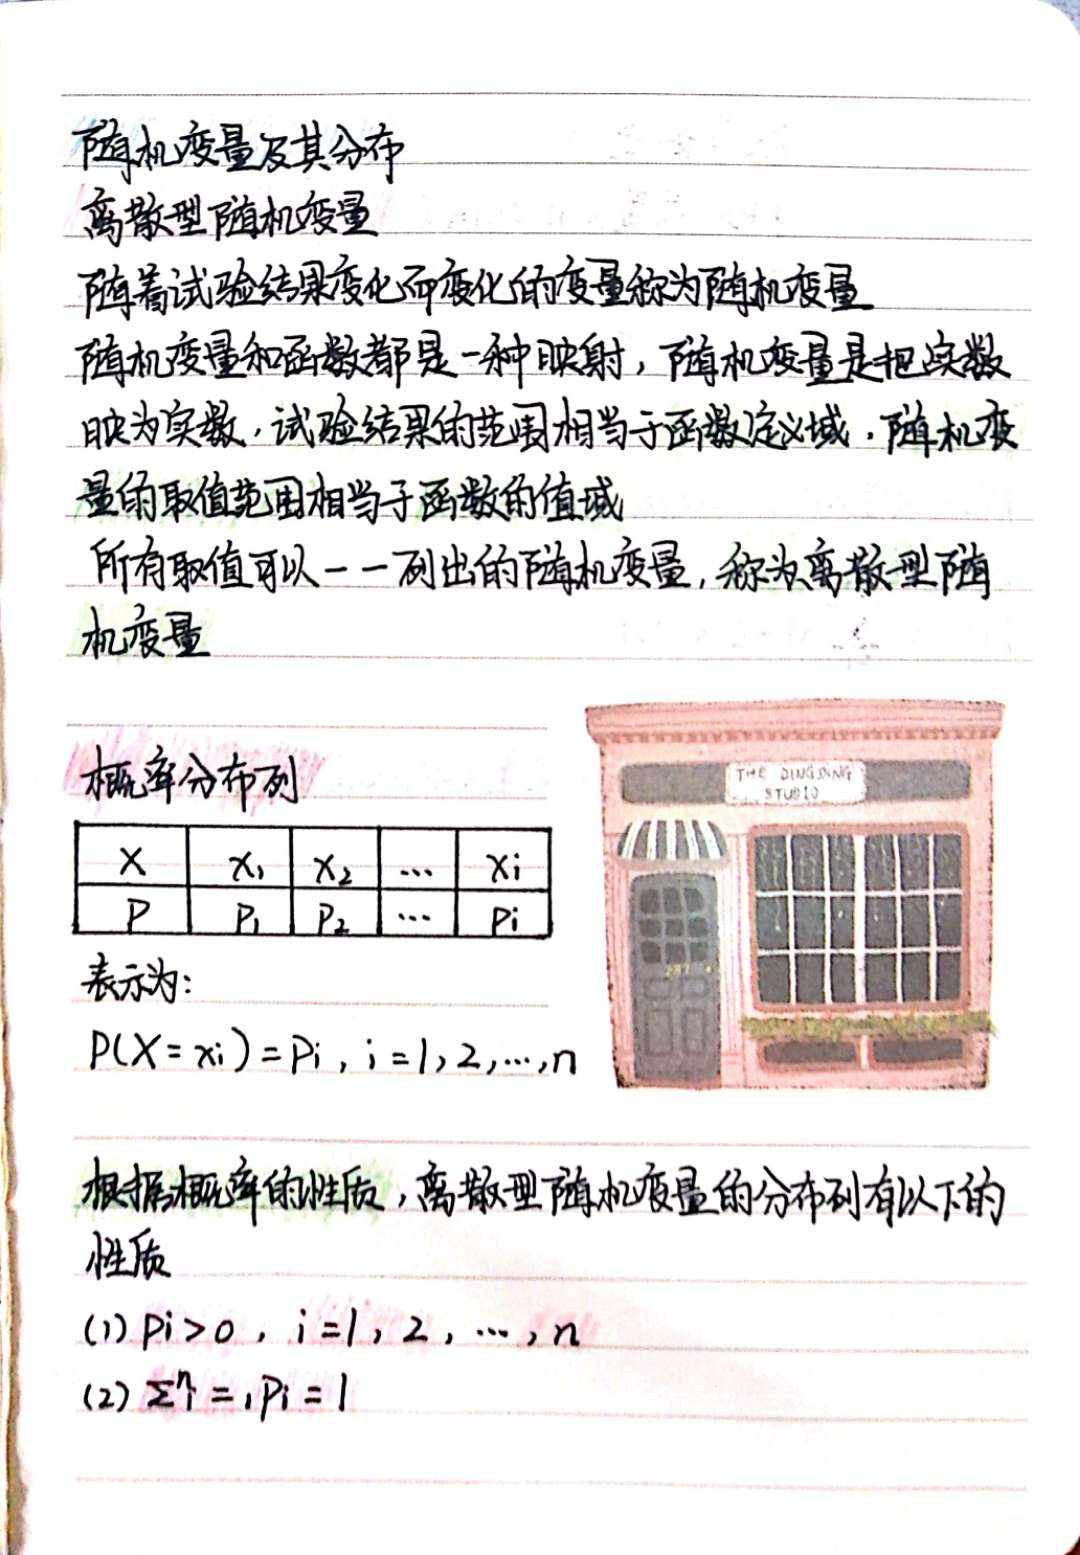 随机变量及其分布
离散型随机变量
随着试验结果变化而变化的变量称为随机变量
随机变量和函数都是一种映射，随机变量是把实数
映为实数，试验结果的范围相当于函数定义域，随机变
量的取值范围相当于函数的值域
所有取值可以一一列出的随机变量，称为离散型随
机变量
概率分布列
THE DINGDING
STUDIO
X x₁ x₂ … xi
P P₁ P₂ … Pi
表示为：
P(X=xi)=Pi，i=1,2,…,n
根据概率的性质，离散型随机变量的分布列有以下的
性质
(1) Pi>0，i=1，2，…，n
(2) Σⁿi=₁Pi=1